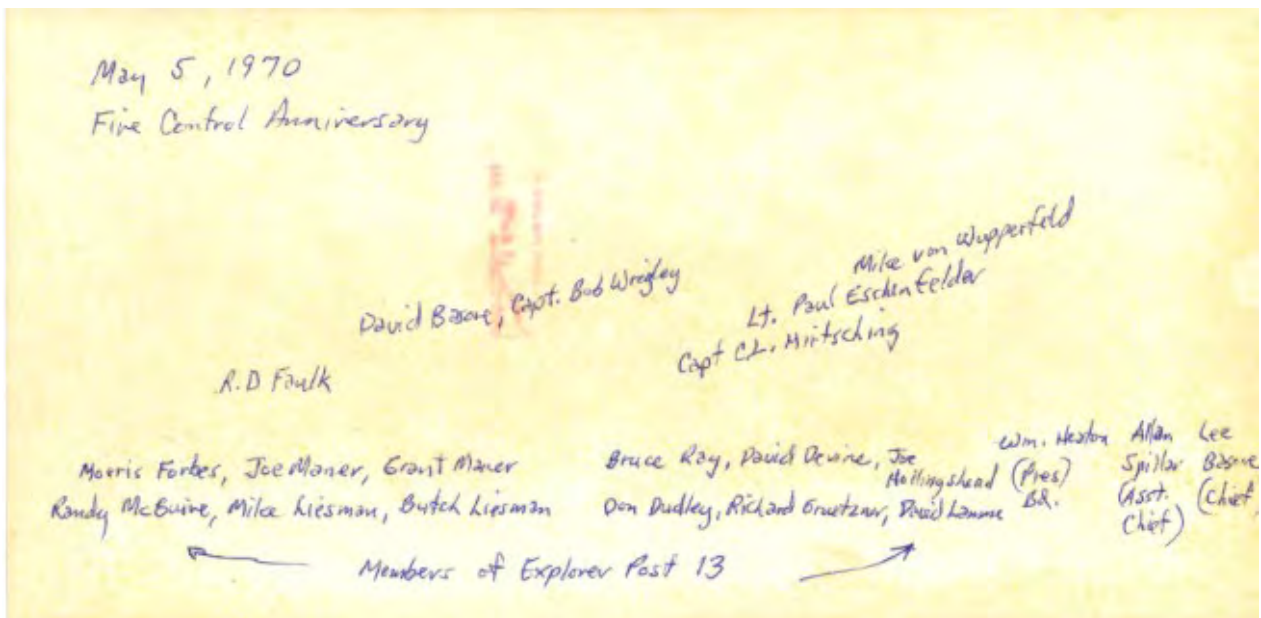 May 5, 1970
Fire Control Anniversary
Mike von Wupperfeld
David Basore, Capt. Bob Wrigley
Lt. Paul Eschenfelder
Capt C.L. Mirtsching
R.D Faulk
Morris Forbes, Joe Maner, Grant Maner
Randy McGuire, Mike Liesman, Butch Liesman
Bruce Ray, David Devine, Joe Hollingshead
Don Dudley, Richard Gruetzner, David Lamme
Wm. Heaton
(Pres)
Bd.
Allan
Spillar
(Asst.
Chief)
Lee
Basore
(Chief,
Members of Explorer Post 13